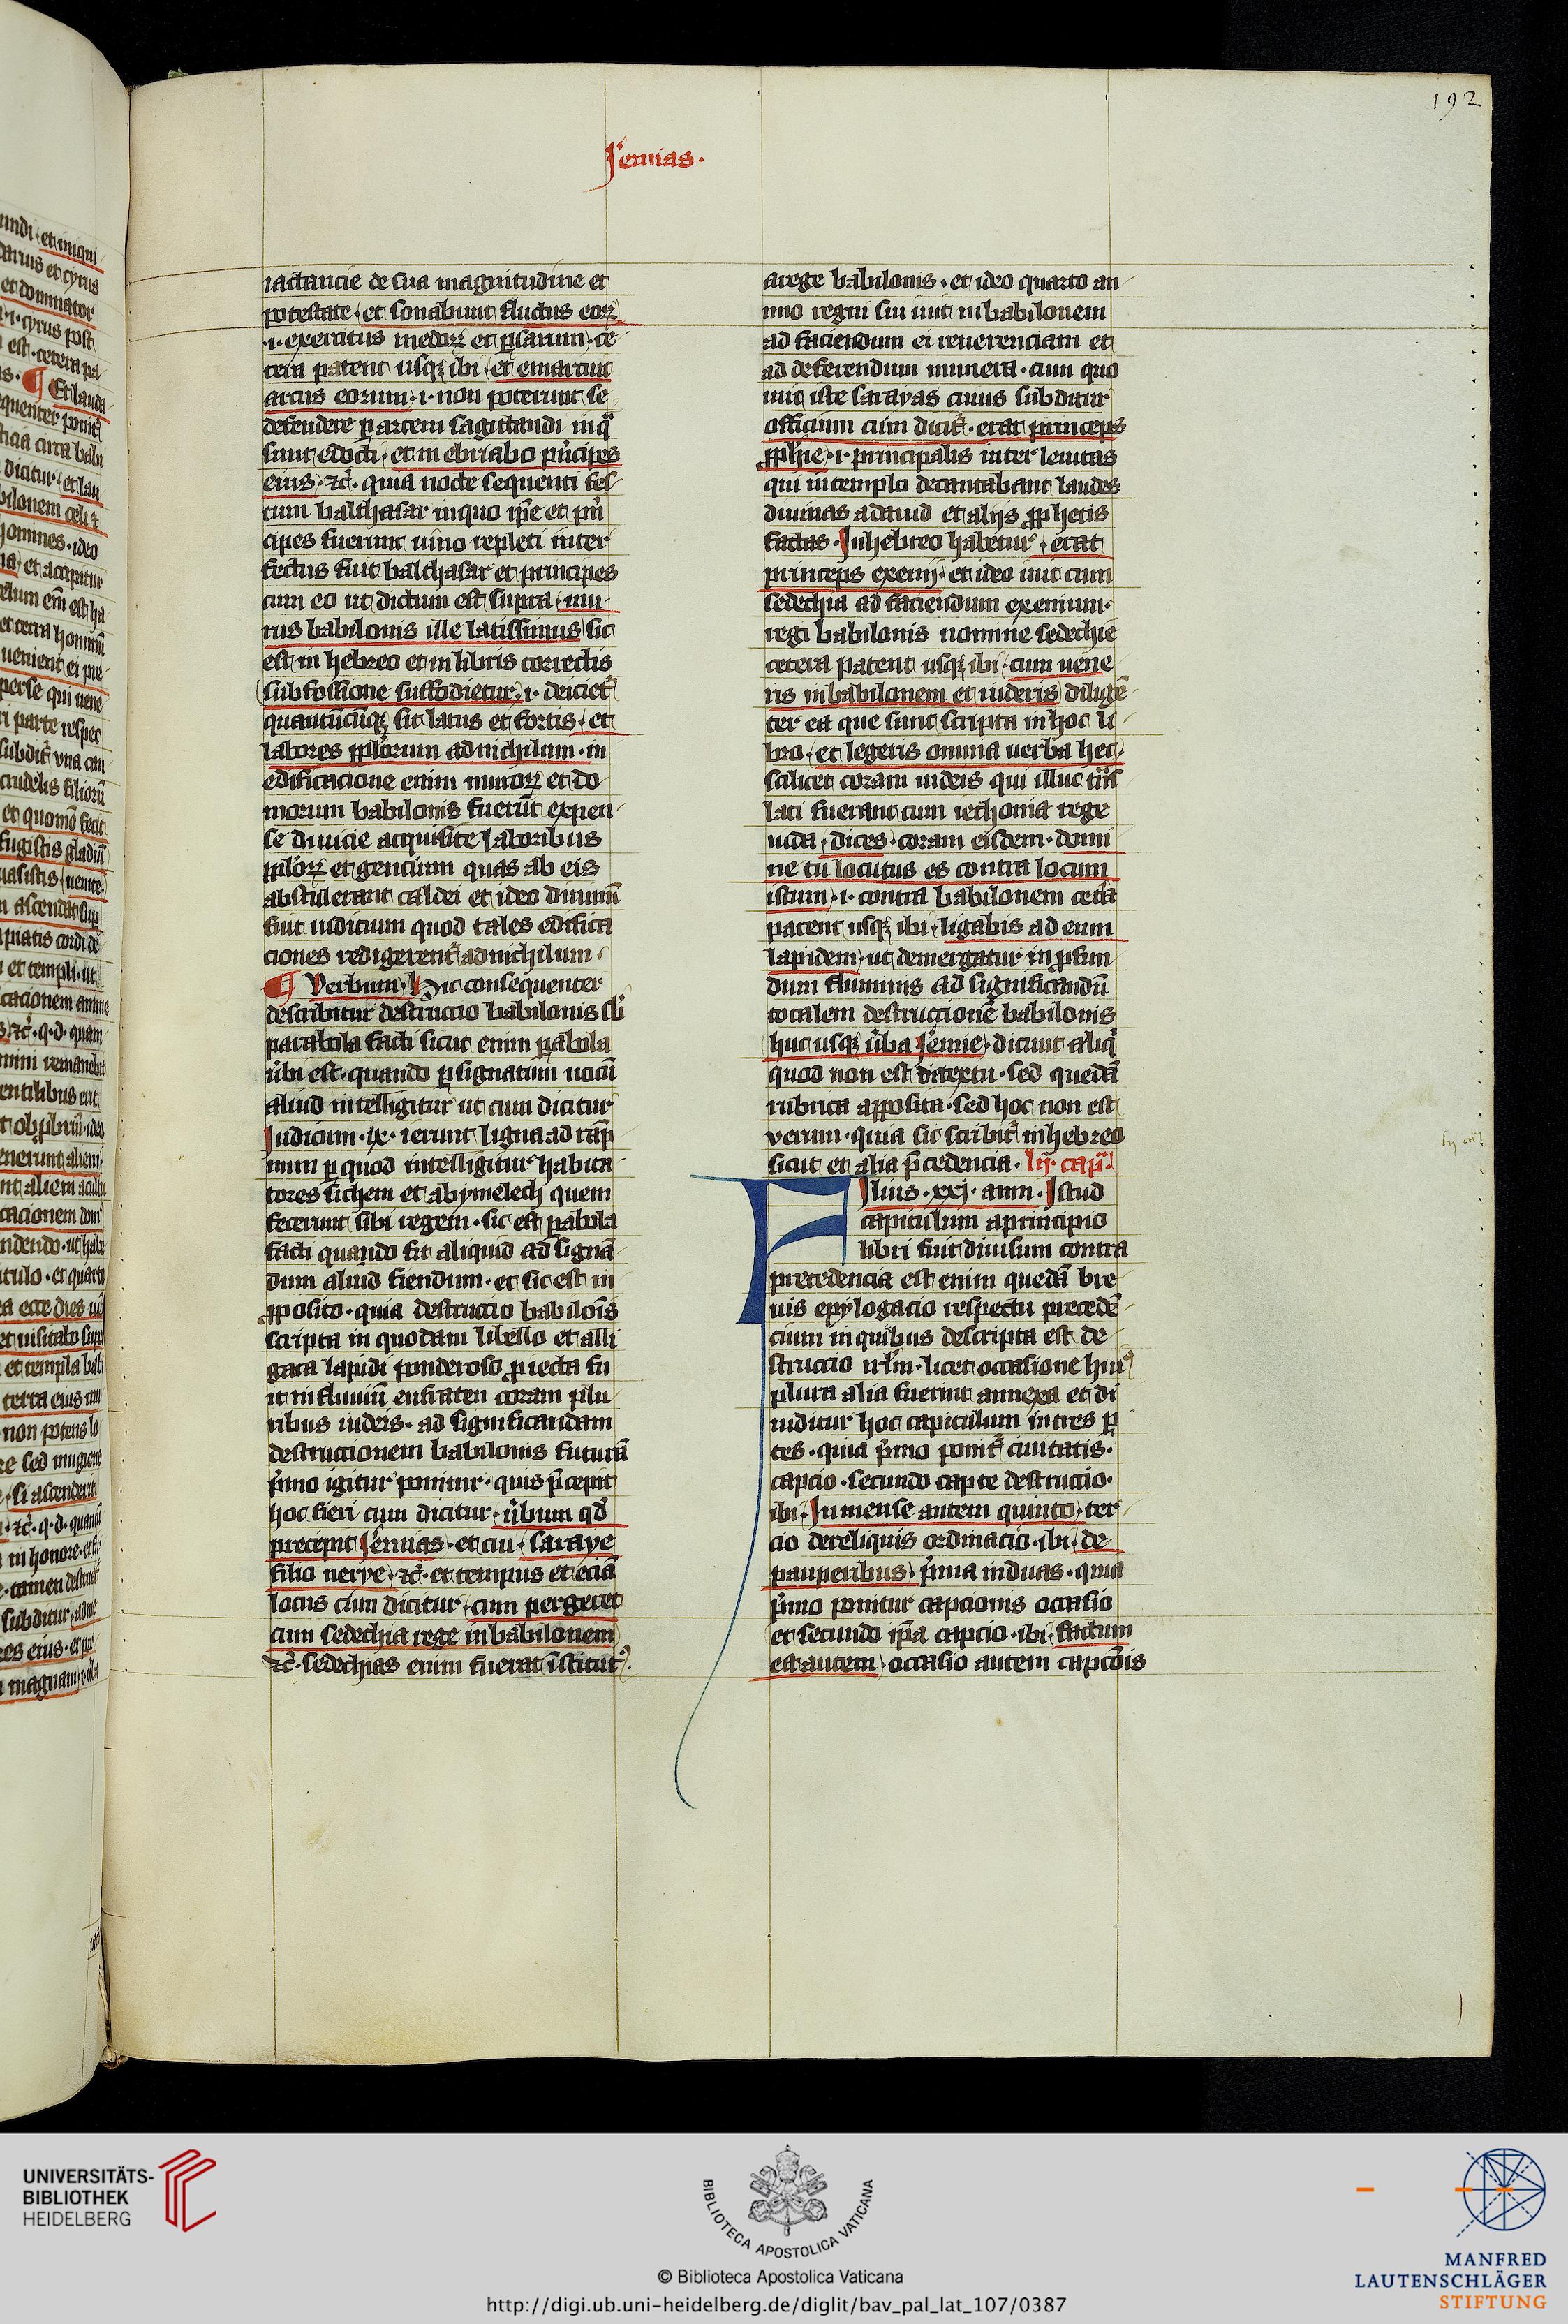 192
Jeremias.
iactancie de sua magnitudine et
potestate · et sonabunt fluctus eorꝝ
·i· exercitus medorꝝ et ꝑsarum · ce
tera patent usqꝫ ibi · et emarcuit
arcus eorum · i · non poterunt se
defendere ꝑ artem sagittandi in qͣ
sunt edocti · et inebriabo pͥncipes
eius · ⁊c̄ · quia nocte sequenti fes
tum balthasar in quo ip̄e et pͥn
cipes fuerunt uino repleti inter
fectus fuit balthasar et principes
cum eo ut dictum est supra · mu
rus babilonis ille latissimus sic
est in hebreo et in libris correctis
subfossione suffodietur · i · deicietᷣ
quantūcūqꝫ sit latus et fortis · et
labores pp̄lorum ad nichilum · in
edificacione enim murorꝝ et do
morum babilonis fuerūt expen
se diuicie acquisite laboribus
pp̄lorꝝ et gencium quas ab eis
abstulerant caldei et ideo diuinū
fuit iudicium quod tales edifica
ciones redigerentᷣ ad nichilum ·
¶ Verbum · Hic consequenter
describitur destructio babilonis sb̾
parabola facti sicut enim ꝑabola
ūbi est · quando ꝑ signatum uocū
aliud intelligitur ut cum dicitur
Judicum · ix · ierunt ligna ad rāp
num ꝑ quod intelligitur habita
tores sichem et abymelech quem
fecerunt sibi regem · sic est ꝑabola
facti quando fit aliquid ad signā
dum aliud fiendum · et sic est in
ꝓposito · quia destructio babiloīs
scripta in quodam libello et alli
gata lapidi ponderoso ꝓiecta fu
it in fluuiū eufraten coram plu
ribus iudeis · ad significandam
destructionem babilonis futurā
pͥmo igitur ponitur · quis p̄cepit
hoc fieri cum dicitur · ūbum qd̄
precepit Jeremias · et cui · saraye
filio nerye · ⁊c̄ · et tempus et eciā
locus cum dicitur · cum pergeret
cum sedechia rege in babilonem
⁊c̄ · sedechias enim fuerat īstitutꝰ ·
a rege babilonis · et ideo quarto an
no regni sui iuit in babilonem
ad faciendum ei reuerenciam et
ad deferendum munera · cum quo
iuit iste sarayas cuius subditur
officium cum dicitᷣ · erat princeps
ꝓph̄ie · i · principalis inter leuitas
qui in templo decantabant laudes
diuinas a dauid et aliis ꝓphetis
factas · In hebreo habetur · erat
princeps exenij · et ideo iuit cum
sedechia ad faciendum exenium ·
regi babilonis nomine sedechie
cetera patent usqꝫ ibi · cum uene
ris in babilonem et uideris diligē
ter ea que sunt scripta in hoc li
bro · et legeris omnia uerba hec ·
scilicet coram iudeis qui illuc tͣns
lati fuerant cum iechonia rege
iuda · dices · coram eisdem · domi
ne tu locutus es contra locum
istum · i · contra babilonem cetͣa
patent usqꝫ ibi · ligabis ad eum
lapidem · ut demergatur in ꝓfun
dum fluminis ad significandū
totalem destructionē babilonis
huc usqꝫ ūba Jeremie · dicunt aliqͥ
quod non est de textu · sed quedā
rubrica apposita · sed hoc non est
verum · quia sic scribitᷣ in hebreo
sicut et alia p̄cedencia · lij · capᵐ·
Filius · xxj · ann · Istud
capitulum a principio
libri fuit diuisum contra
precedencia est enim quedā bre
uis epylogacio respectu precedē
cium in quibus descripta est de
structio irl̄m · licet occasione huiꝰ
plura alia fuerint annexa et di
uiditur hoc capitulum in tres ꝑ
tes · quia pͥmo ponitᷣ ciuitatis ·
capcio · secundo capte destructio ·
ibi · In mense autem quinto · ter
cio de reliquis ordinacio · ibi · de
pauperibus · pͥma in duas · quia
pͥmo ponitur capcionis occasio
et secundo ip̄a capcio · ibi · factum
est autem · occasio autem capcōnis
UNIVERSITÄTS-
BIBLIOTHEK
HEIDELBERG
BIBLIOTECA APOSTOLICA VATICANA
© Biblioteca Apostolica Vaticana
http://digi.ub.uni-heidelberg.de/diglit/bav_pal_lat_107/0387
MANFRED
LAUTENSCHLÄGER
STIFTUNG